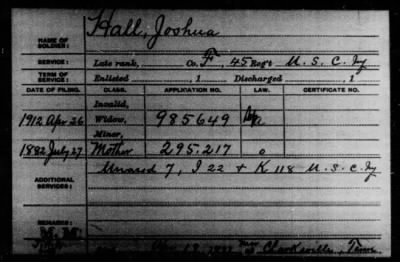 NAME OF SOLDIER: Hall, Joshua
SERVICE: Late rank, Co. F, 45 Reg't U. S. C. Iy
TERM OF SERVICE: Enlisted , 1 Discharged , 1
DATE OF FILING. CLASS. APPLICATION NO. LAW. CERTIFICATE NO.
Invalid,
1912 Apr 26 Widow, 985649
Minor,
1882 July 27 Mother 295.217 o
ADDITIONAL SERVICES: 7, I 22 + K 118 U. S. C. Iy
REMARKS:
M.M.
Clarksville, Tenn.